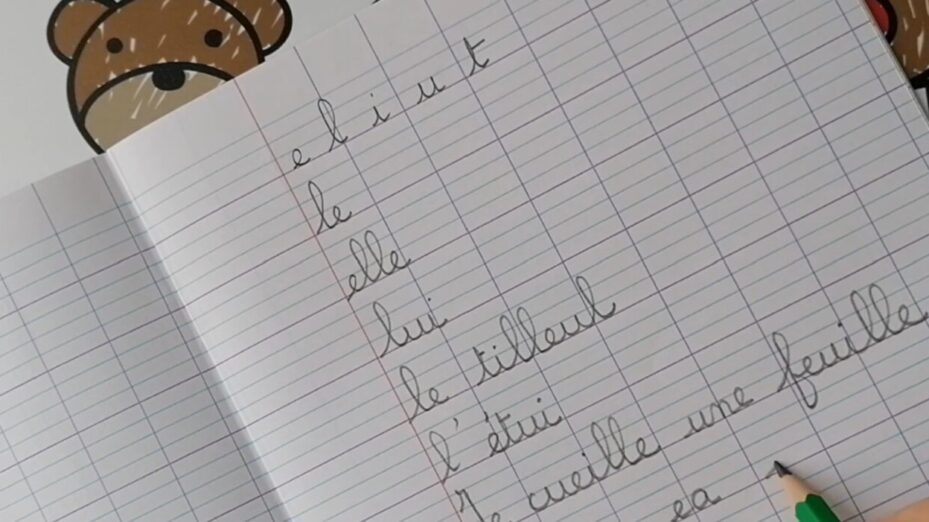 e l i u t
le
elle
lui
le tilleul
l'étui
Je cueille une feuille
ea